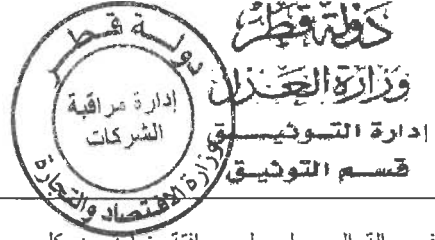 دولة قطر
وزارة العدل
إدارة التوثيق
قسم التوثيق
دولة قطر
إدارة مراقبة
الشركات
وزارة الاقتصاد والتجارة